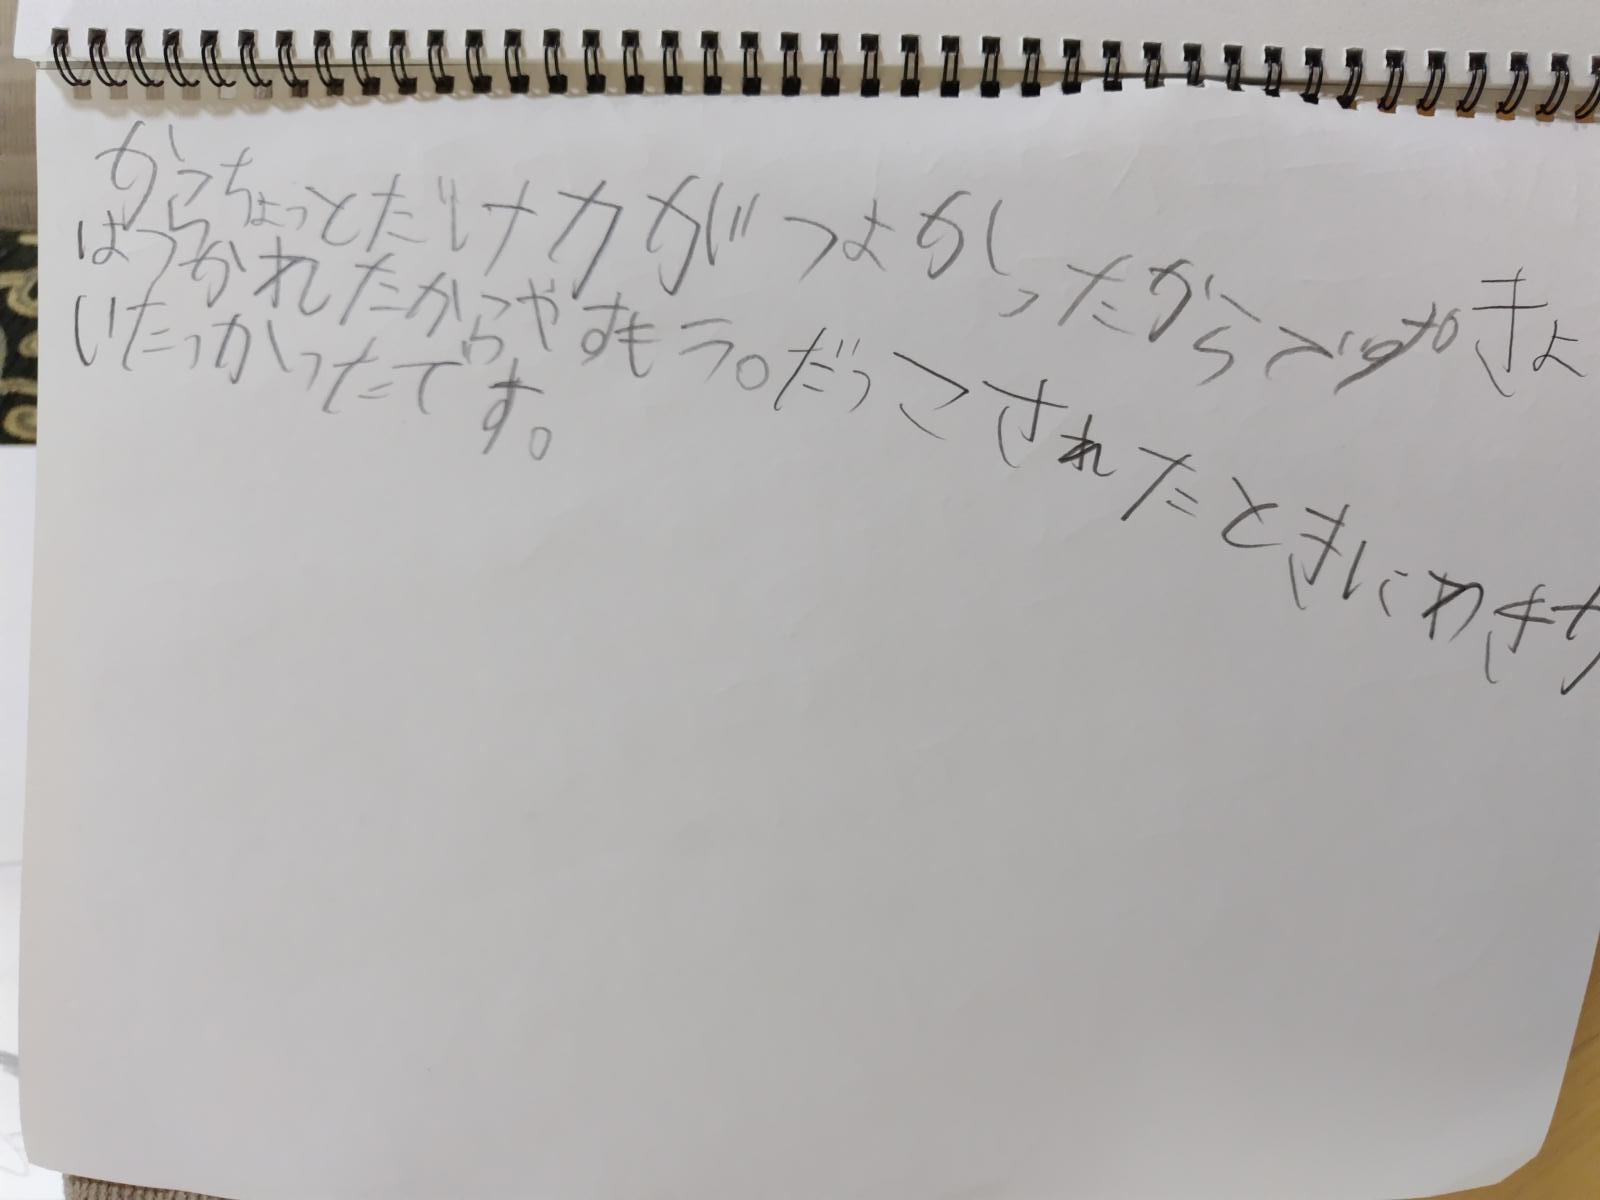 からちょっとだけ力がつよかったからです。きょ
はつかれたからやすもう。だっこされたときにわきが
いたっかったです。